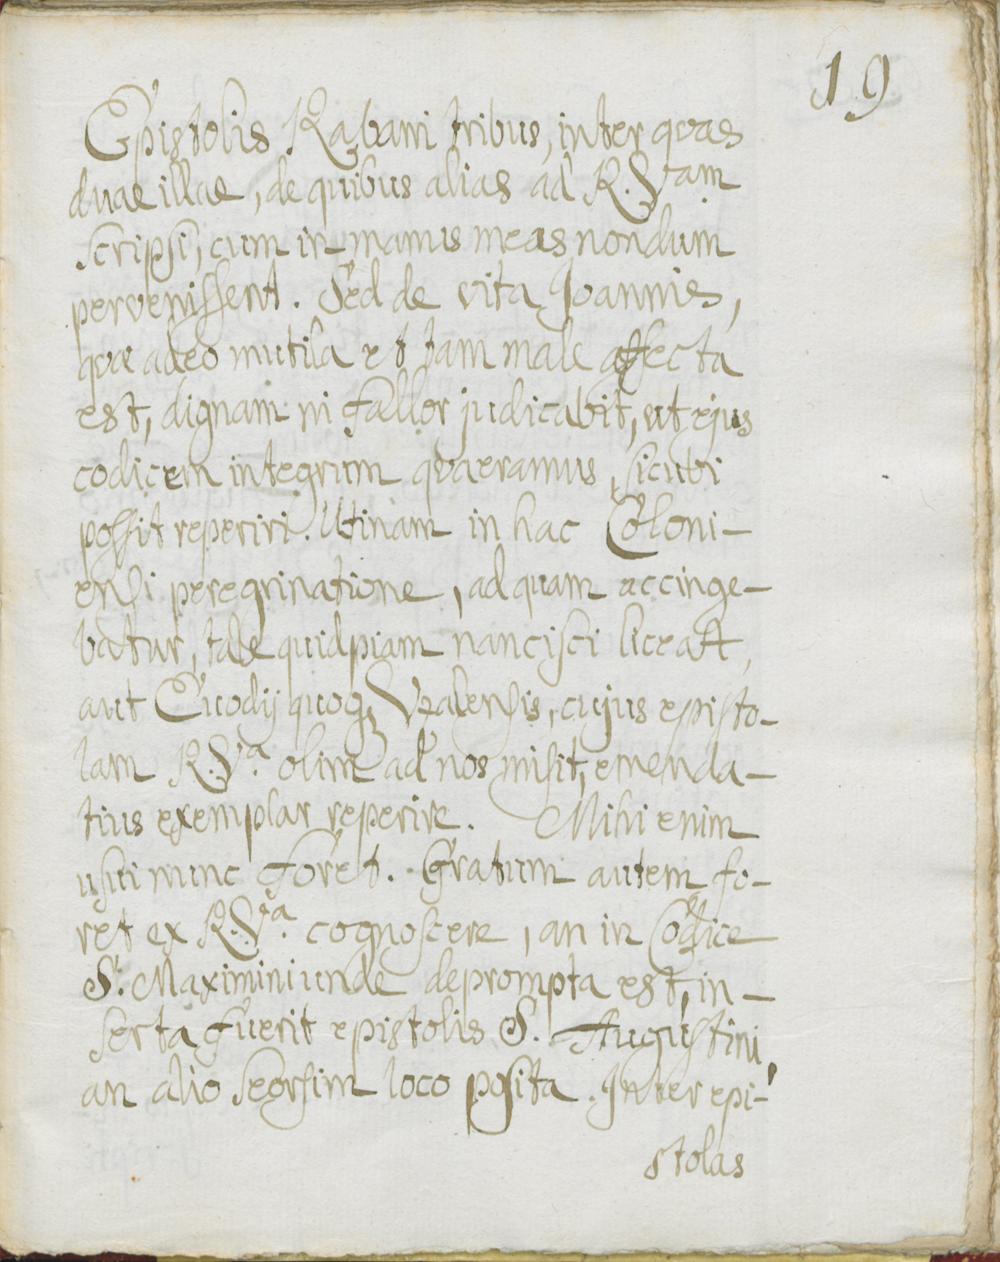 19
Epistolis Rabani tribus, inter qvas
duae illae, de quibus alias ad R. Vam
scripsi, cum in manus meas nondum
pervenissent. Sed de vita Joannis,
qvæ adeo mutila et tam male affecta
est, dignam ni fallor judicabit, ut ejus
codicem integrum qvaeramus, sicubi
possit reperiri. Utinam in hac Coloni-
ensi peregrinatione, ad quam accinge-
batur, tale quidpiam nancisci liceat,
aut Evodij quoq; Vzalensis, cujus episto-
lam R. Va. olim ad nos misit, emenda-
tius exemplar reperire. Mihi enim
usui nunc foret. Gratum autem fo-
ret ex R. Va. cognoscere, an in Codice
S. Maximini unde deprompta est, in-
serta fuerit epistolis S. Augustini,
an alio seorsim loco posita. Inter epi-
stolas